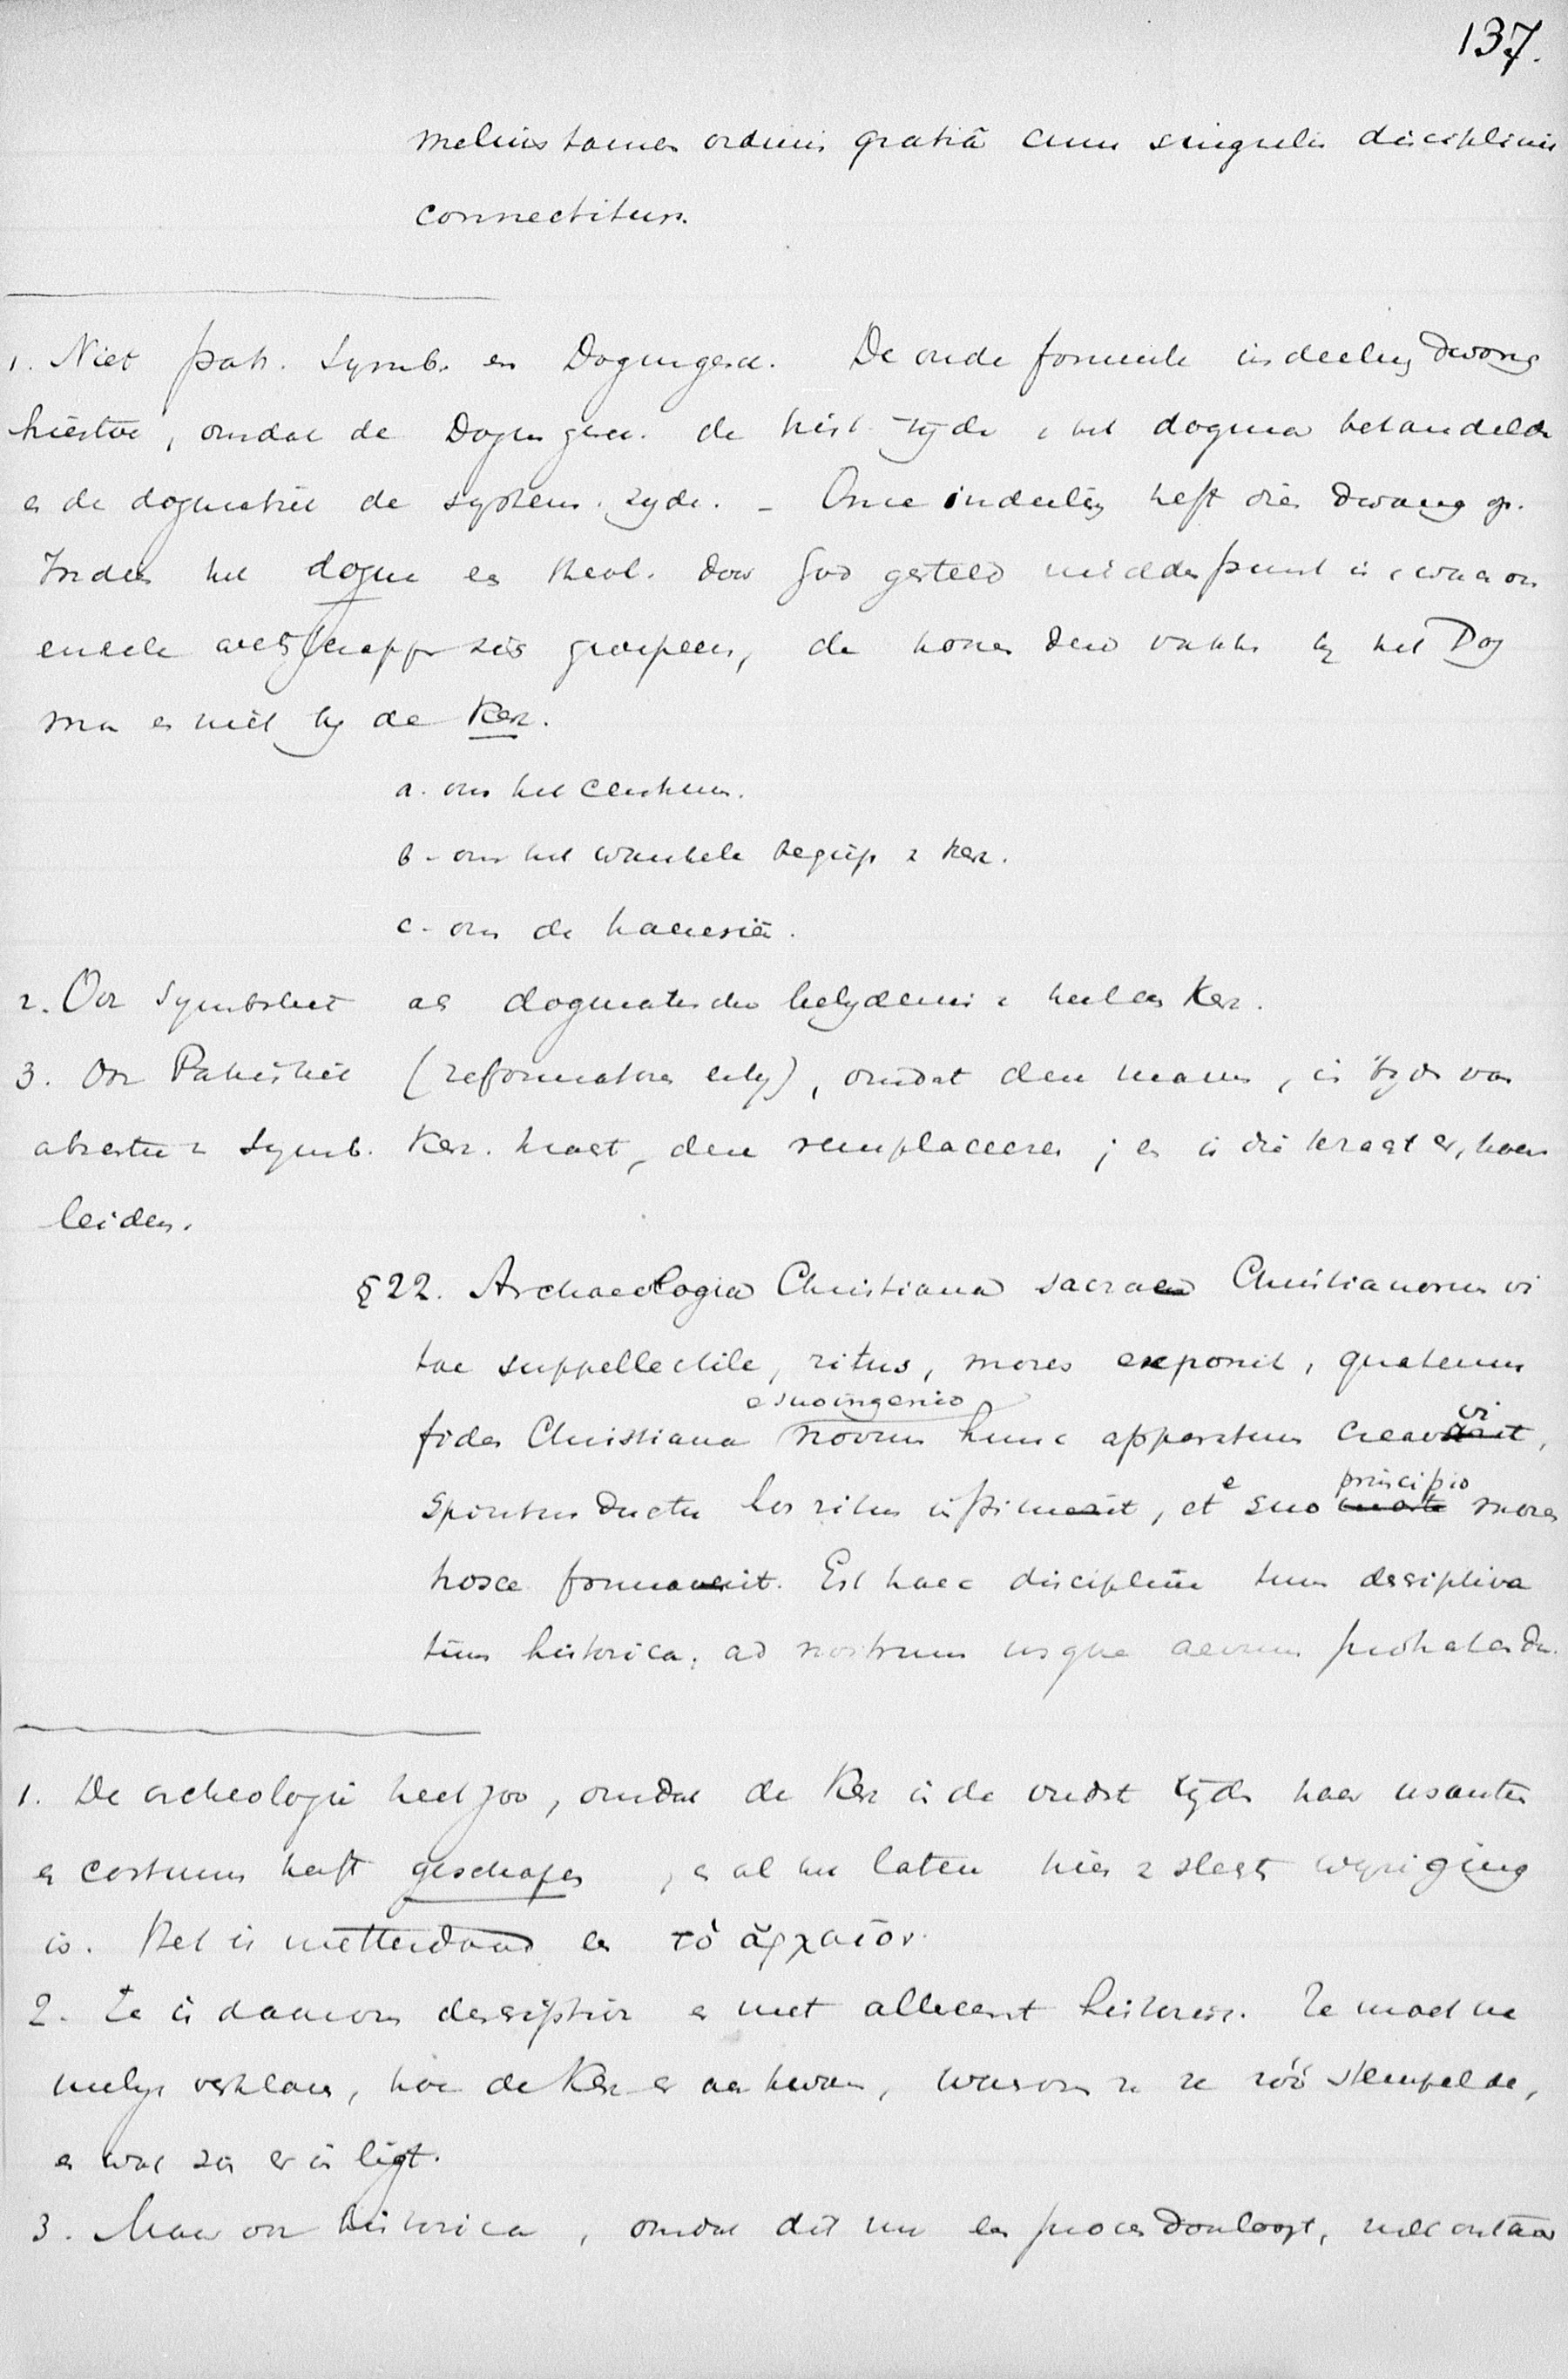 137.
melius tamen ordinis gratiâ cum singulis disciplinis
connectitur.
1. Niet patr. Symb. en Dogmgesch. De oude formeele indeeling dwong
hiertoe, omdat de Dogmgesch. de hist. zijde v het dogma behandelde
en de dogmatiek de system. zyde. - Onze indeeling heft die dwang op.
Indien het dogme en theol. door God gesteld middenpunt is, waarom
enkele wetschappen zich groepeeren, dan komen deze vakken by het Dog
ma en niet by de Kerk.
a. om het centrum.
b - om het wankele begrip v kerk.
c - om de haeresiën.
2. Ook Symboliek als dogmatische belydenis v heel en Kerk.
3. Ook Patristiek (reformatoren enby), omdat deze mann, in tyd van
absentie v Symb. Kerk. kracht, deze remplaceeren; en in die kracht er, heen
leiden.
§ 22. Archaeologia Christiana sacram Christianorum vi
tae suppellectile, ritus, mores exponit, quatenus
e suo ingenio
fides Christiana novum hunc apparatum creavit,
Spiritus ductu hos ritus , et e suo principio mores
hosce formavit. Est haec disciplina tum descriptiva
tum historica, ad nostrum usque aevum protrahenda.
1. De archeologie heet zoo, omdat de Kerk in de oudst tyd haar usantien
en costumen heeft geschapen, en al het latere hier v slechts wyziging
is. Het is metterdaad en τὸ ἀρχαῖον.
2. Ze is daarom descriptive en niet alleen historisch. Ze moet na
melyk verklaren, hoe de Kerk er aan kwam, waarom ze ze zóó stempelde,
en wat zin er in ligt.
3. Maar ook historica, omdat dit nu een proces doorloopt, metontaar